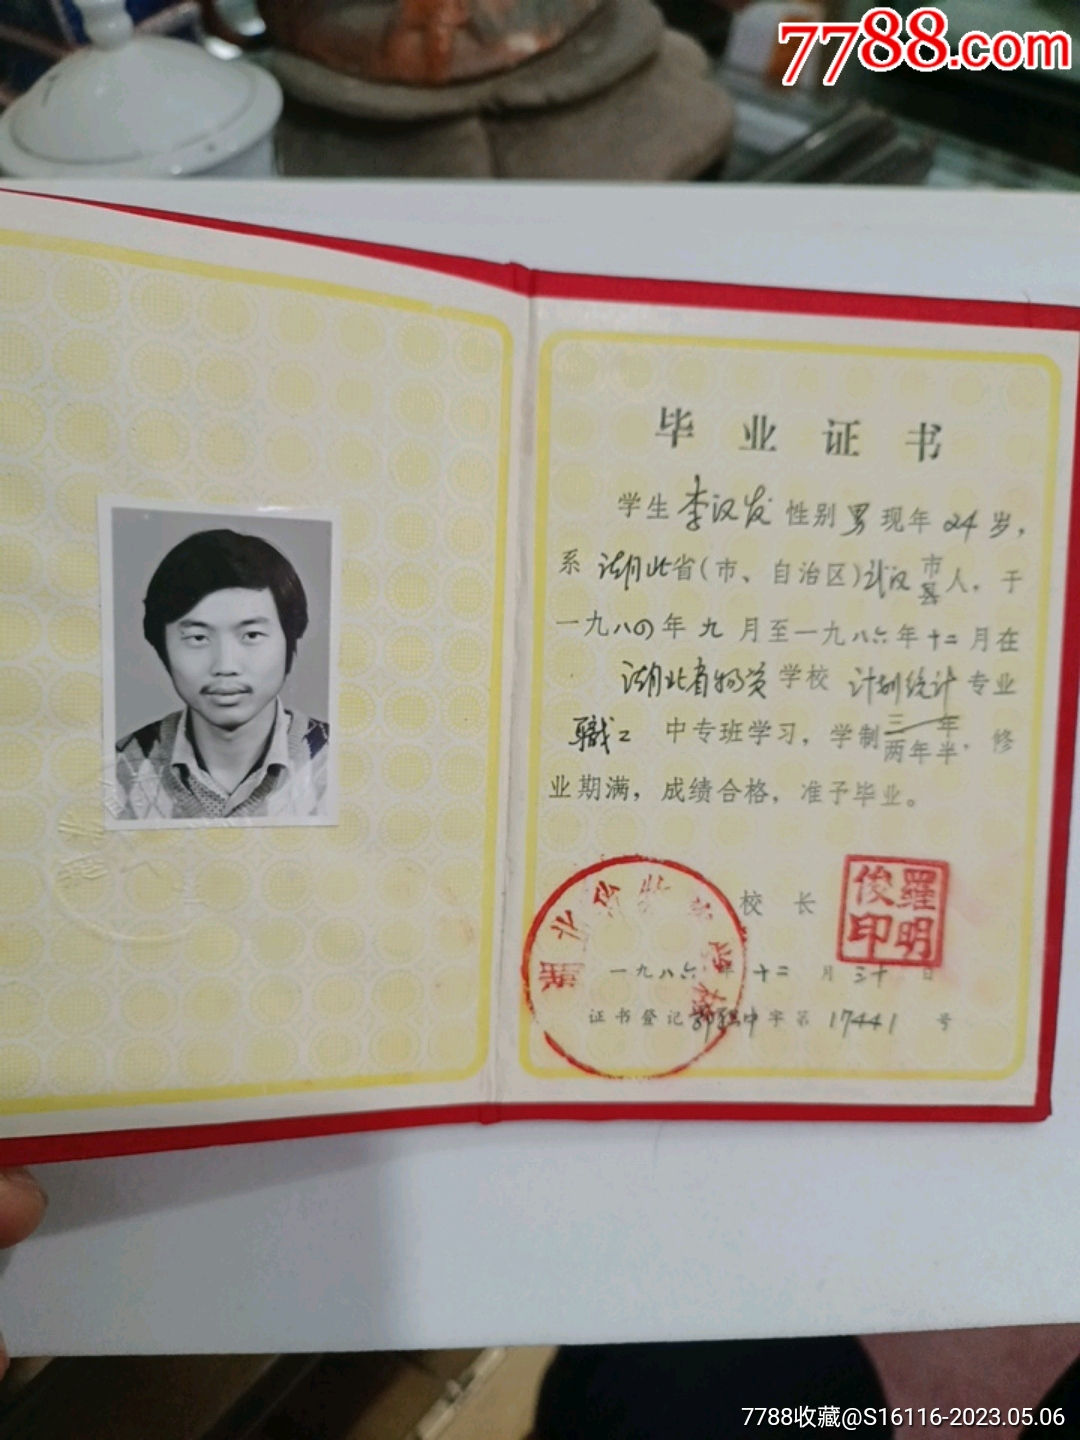 7788.com
毕业证书
学生李汉发性别男现年24岁，
系湖北省(市、自治区)武汉市县人，于
一九八四年九月至一九八六年十二月在
湖北省物资学校计划统计专业
职工中专班学习，学制三年两年半，修
业期满，成绩合格，准予毕业。
校长
羅明俊印
湖北省物
校
一九八六年十二月三十日
证书登记 中字第17441号
7788收藏@S16116-2023.05.06